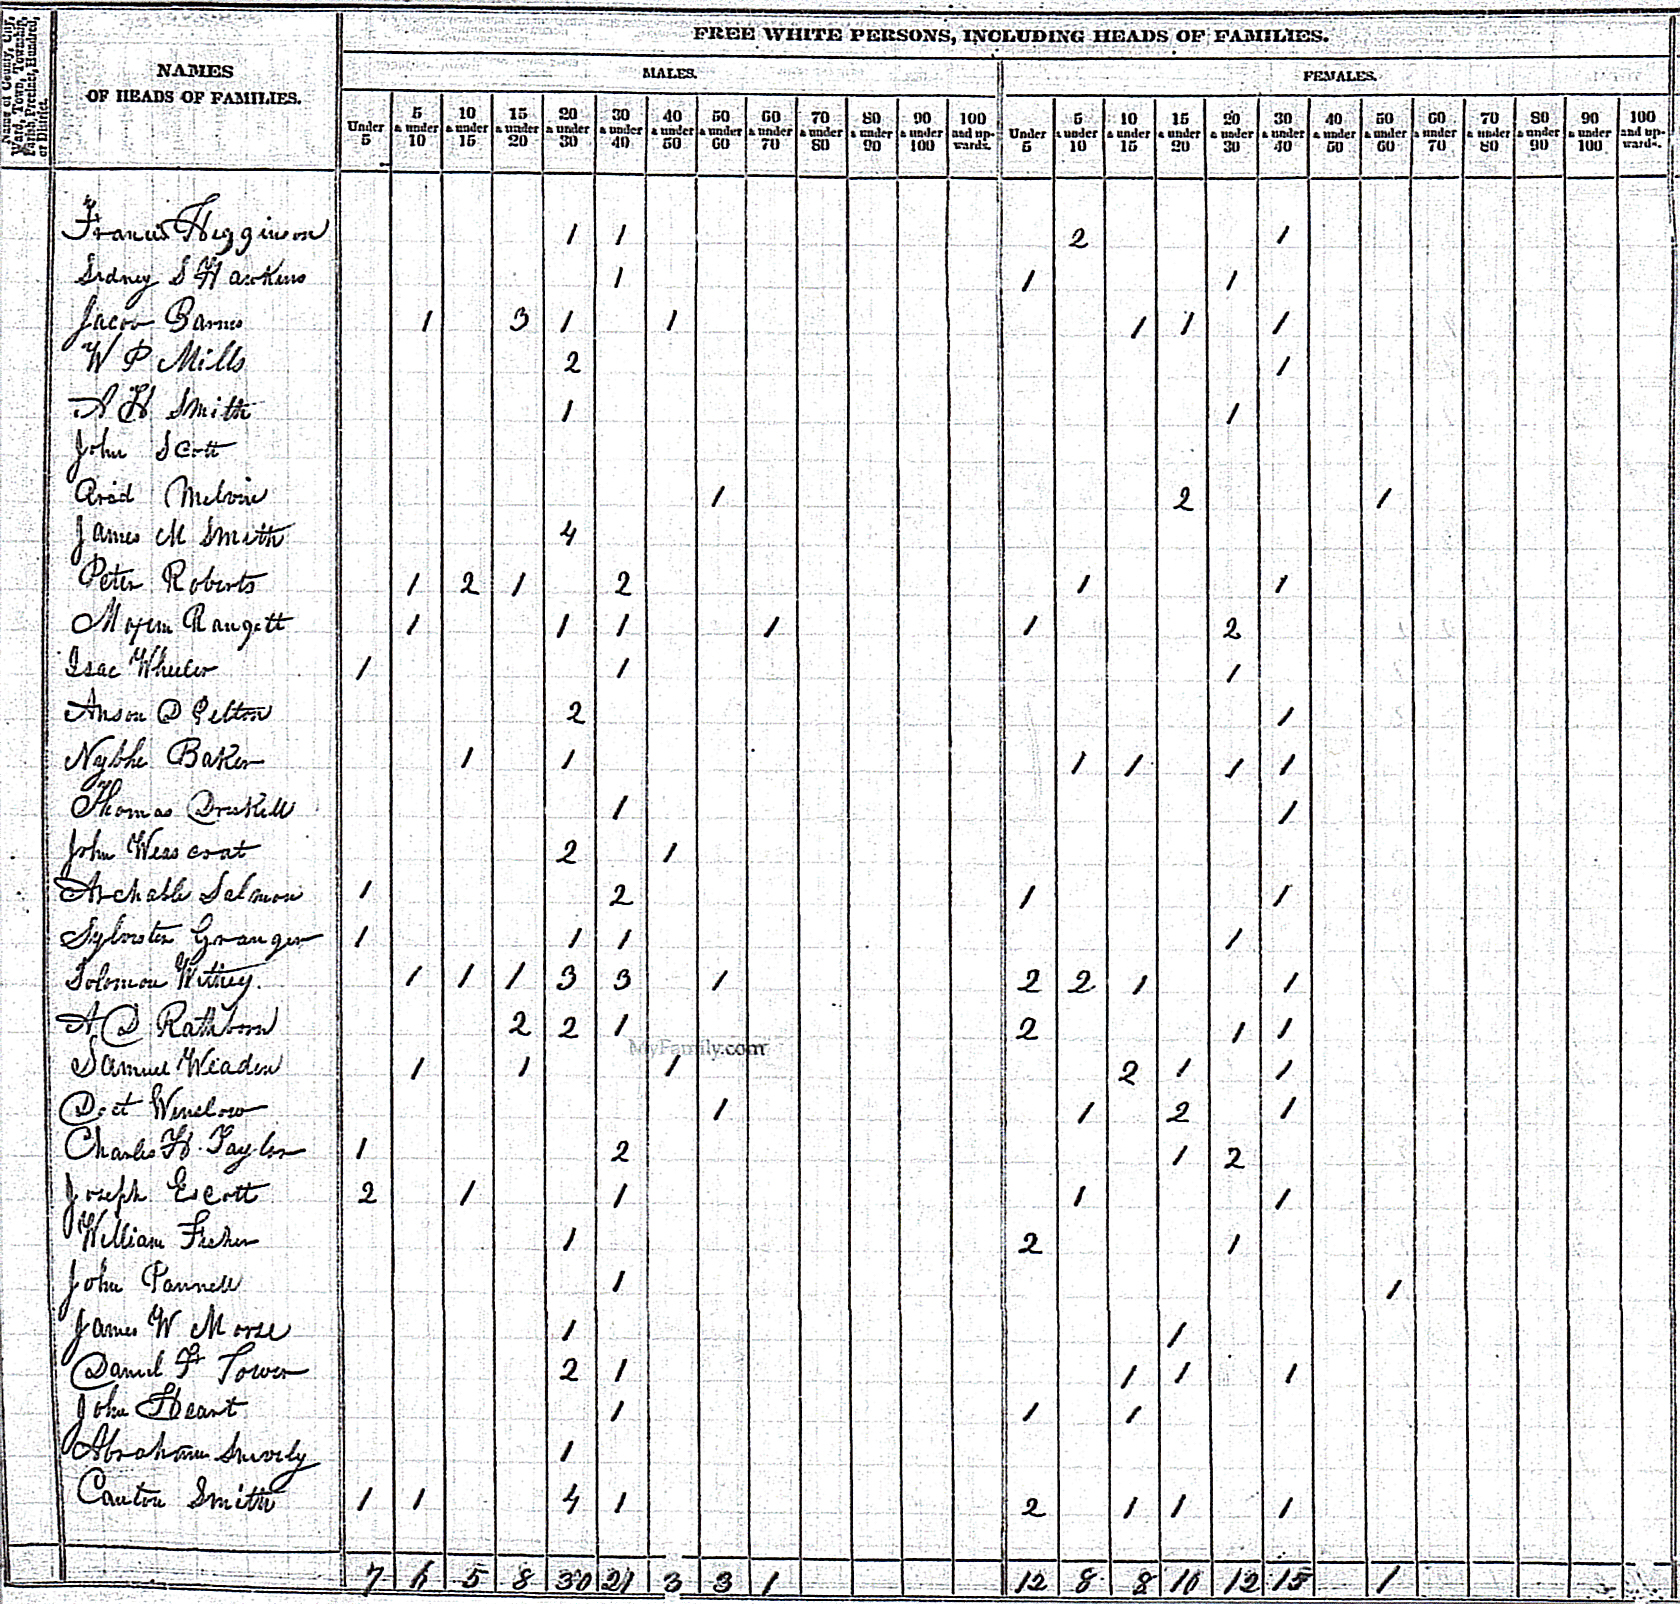 Name of County, City, Ward, Town, Township, Parish, Precinct, Hundred, or District.
NAMES
OF HEADS OF FAMILIES.
FREE WHITE PERSONS, INCLUDING HEADS OF FAMILIES.
MALES. FEMALES.
Under 5 5 & under 10 10 & under 15 15 & under 20 20 & under 30 30 & under 40 40 & under 50 50 & under 60 60 & under 70 70 & under 80 80 & under 90 90 & under 100 100 and upwards. Under 5 5 & under 10 10 & under 15 15 & under 20 20 & under 30 30 & under 40 40 & under 50 50 & under 60 60 & under 70 70 & under 80 80 & under 90 90 & under 100 100 and upwards.
Francis Higginson 1 1 2 1
Sidney S Hawkins 1 1 1
Jacob Barnes 1 3 1 1 1 1 1
W P Mills 2 1
A H Smith 1 1
John Scott
Arad Melvin 1 2 1
James M Smith 4
Peter Roberts 1 2 1 2 1 1
1 1 1 1 1 2
Isac Wheeler 1 1 1
Anson D Pelton 2 1
Baker 1 1 1 1 1 1
Thomas Driskell 1 1
John Wesscoat 2 1
Archable Salmon 1 2 1 1
Sylvester Granger 1 1 1 1
Solomon Withey. 1 1 1 3 3 1 2 2 1 1
A D Rathbom 2 2 1 2 1 1
MyFamily.com
Samuel 1 1 1 2 1 1
Doct Winslow 1 1 2 1
Charles H. Taylor 1 2 1 2
Joseph Escott 2 1 1 1 1
William Fisher 1 2 1
John Pannell 1 1
James W Morse 1 1
Daniel F Tower 2 1 1 1 1
John Heart 1 1 1
Abraham Snively 1
Canton Smith 1 1 4 1 2 1 1 1
7 6 5 8 30 21 3 3 1 12 8 8 10 12 15 1